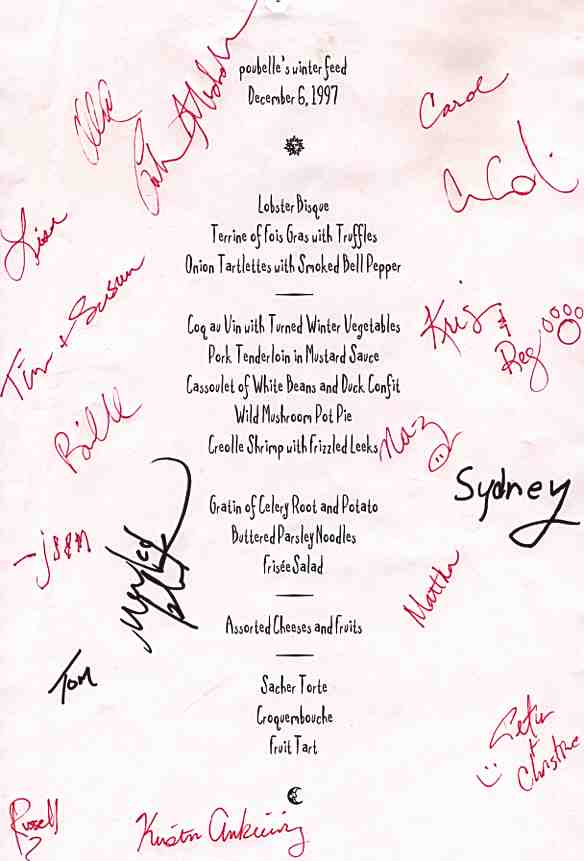 poubelle's winter feed
December 6, 1997
Carol
Lobster Bisque
Terrine of Fois Gras with Truffles
Onion Tartlettes with Smoked Bell Pepper
Lisa
Tim + Susan
Coq au Vin with Turned Winter Vegetables
Pork Tenderloin in Mustard Sauce
Cassoulet of White Beans and Duck Confit
Wild Mushroom Pot Pie
Creolle Shrimp with Frizzled Leeks
Kris &
Reg
Sydney
Gratin of Celery Root and Potato
Buttered Parsley Noodles
Frisée Salad
Martha
Assorted Cheeses and Fruits
Tom
Sacher Torte
Croquembouche
Fruit Tart
Peter
+
Christine
Russell
Kirstin